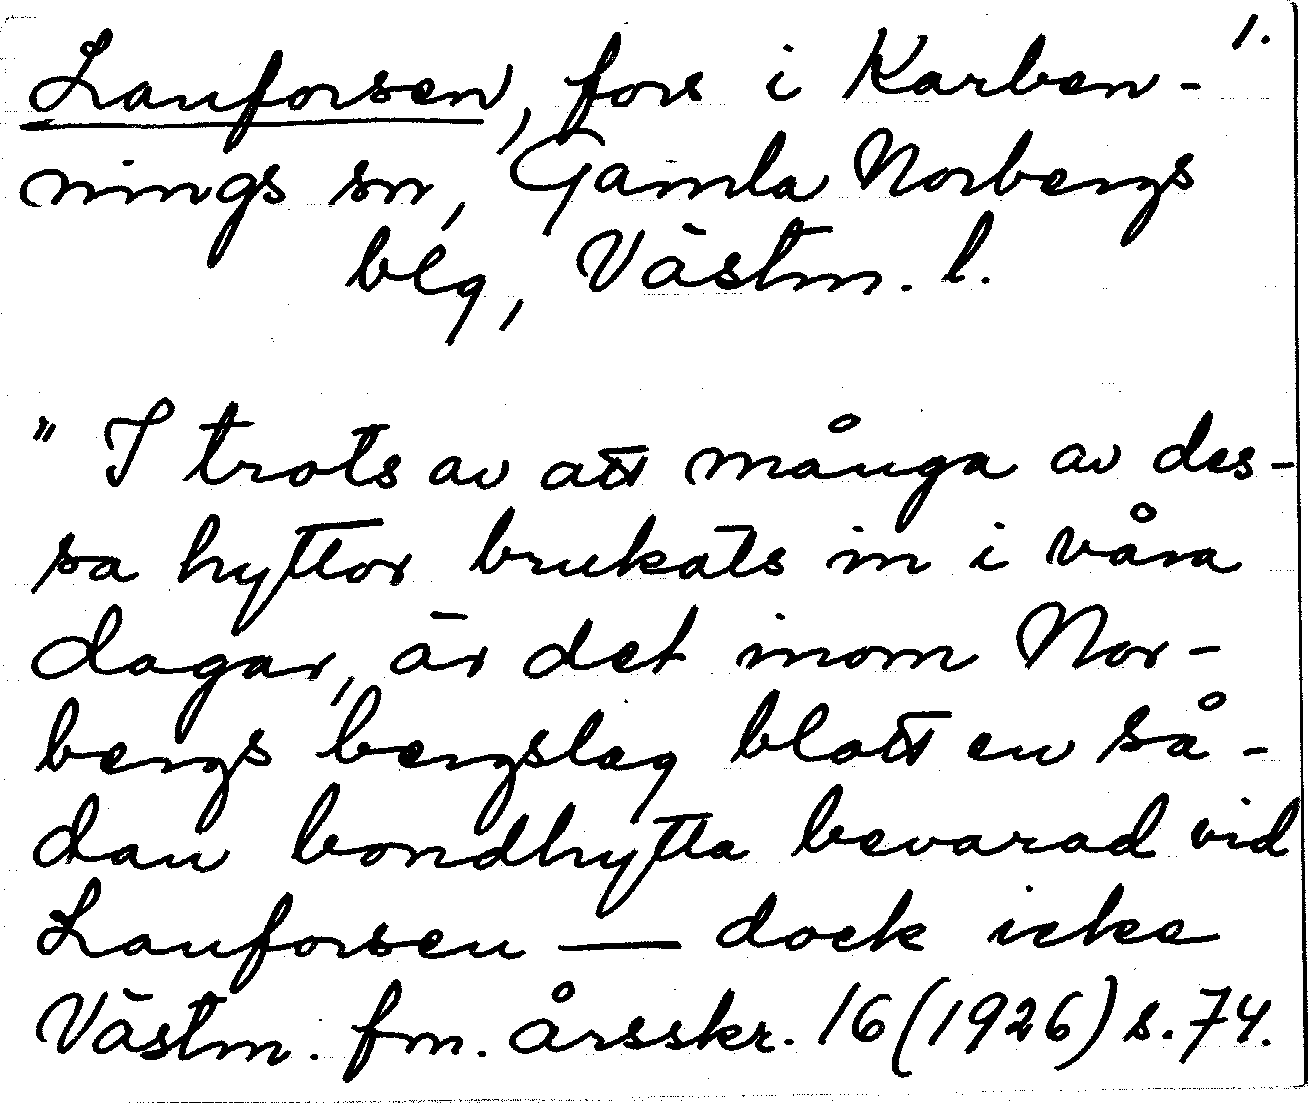 1.
Lanforsen, fors i Karben-
nings sn, Gamla Norbergs
blg, Västm. l.
"I trots av att många av des-
sa hyttor brukats in i våra
dagar, är det inom Nor-
bergs bergslag blott en så-
dan bondhytta bevarad vid
Lanforsen — dock icke
Västm. fm. årsskr. 16 (1926) s. 74.